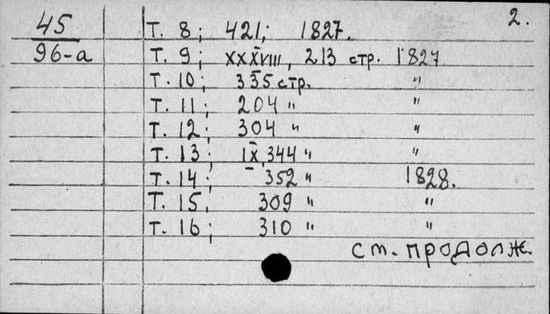 2.
45
96-а
Т. 8; 421; 1827.
Т. 9; XXXVIII, 213 стр. 1827
Т. 10; 335 стр. "
Т. 11; 204 " "
Т. 12; 304 " "
Т. 13; IX, 344 " "
Т. 14; 352 " 1828.
Т. 15, 309 " "
Т. 16; 310 " "
ст. продолж.